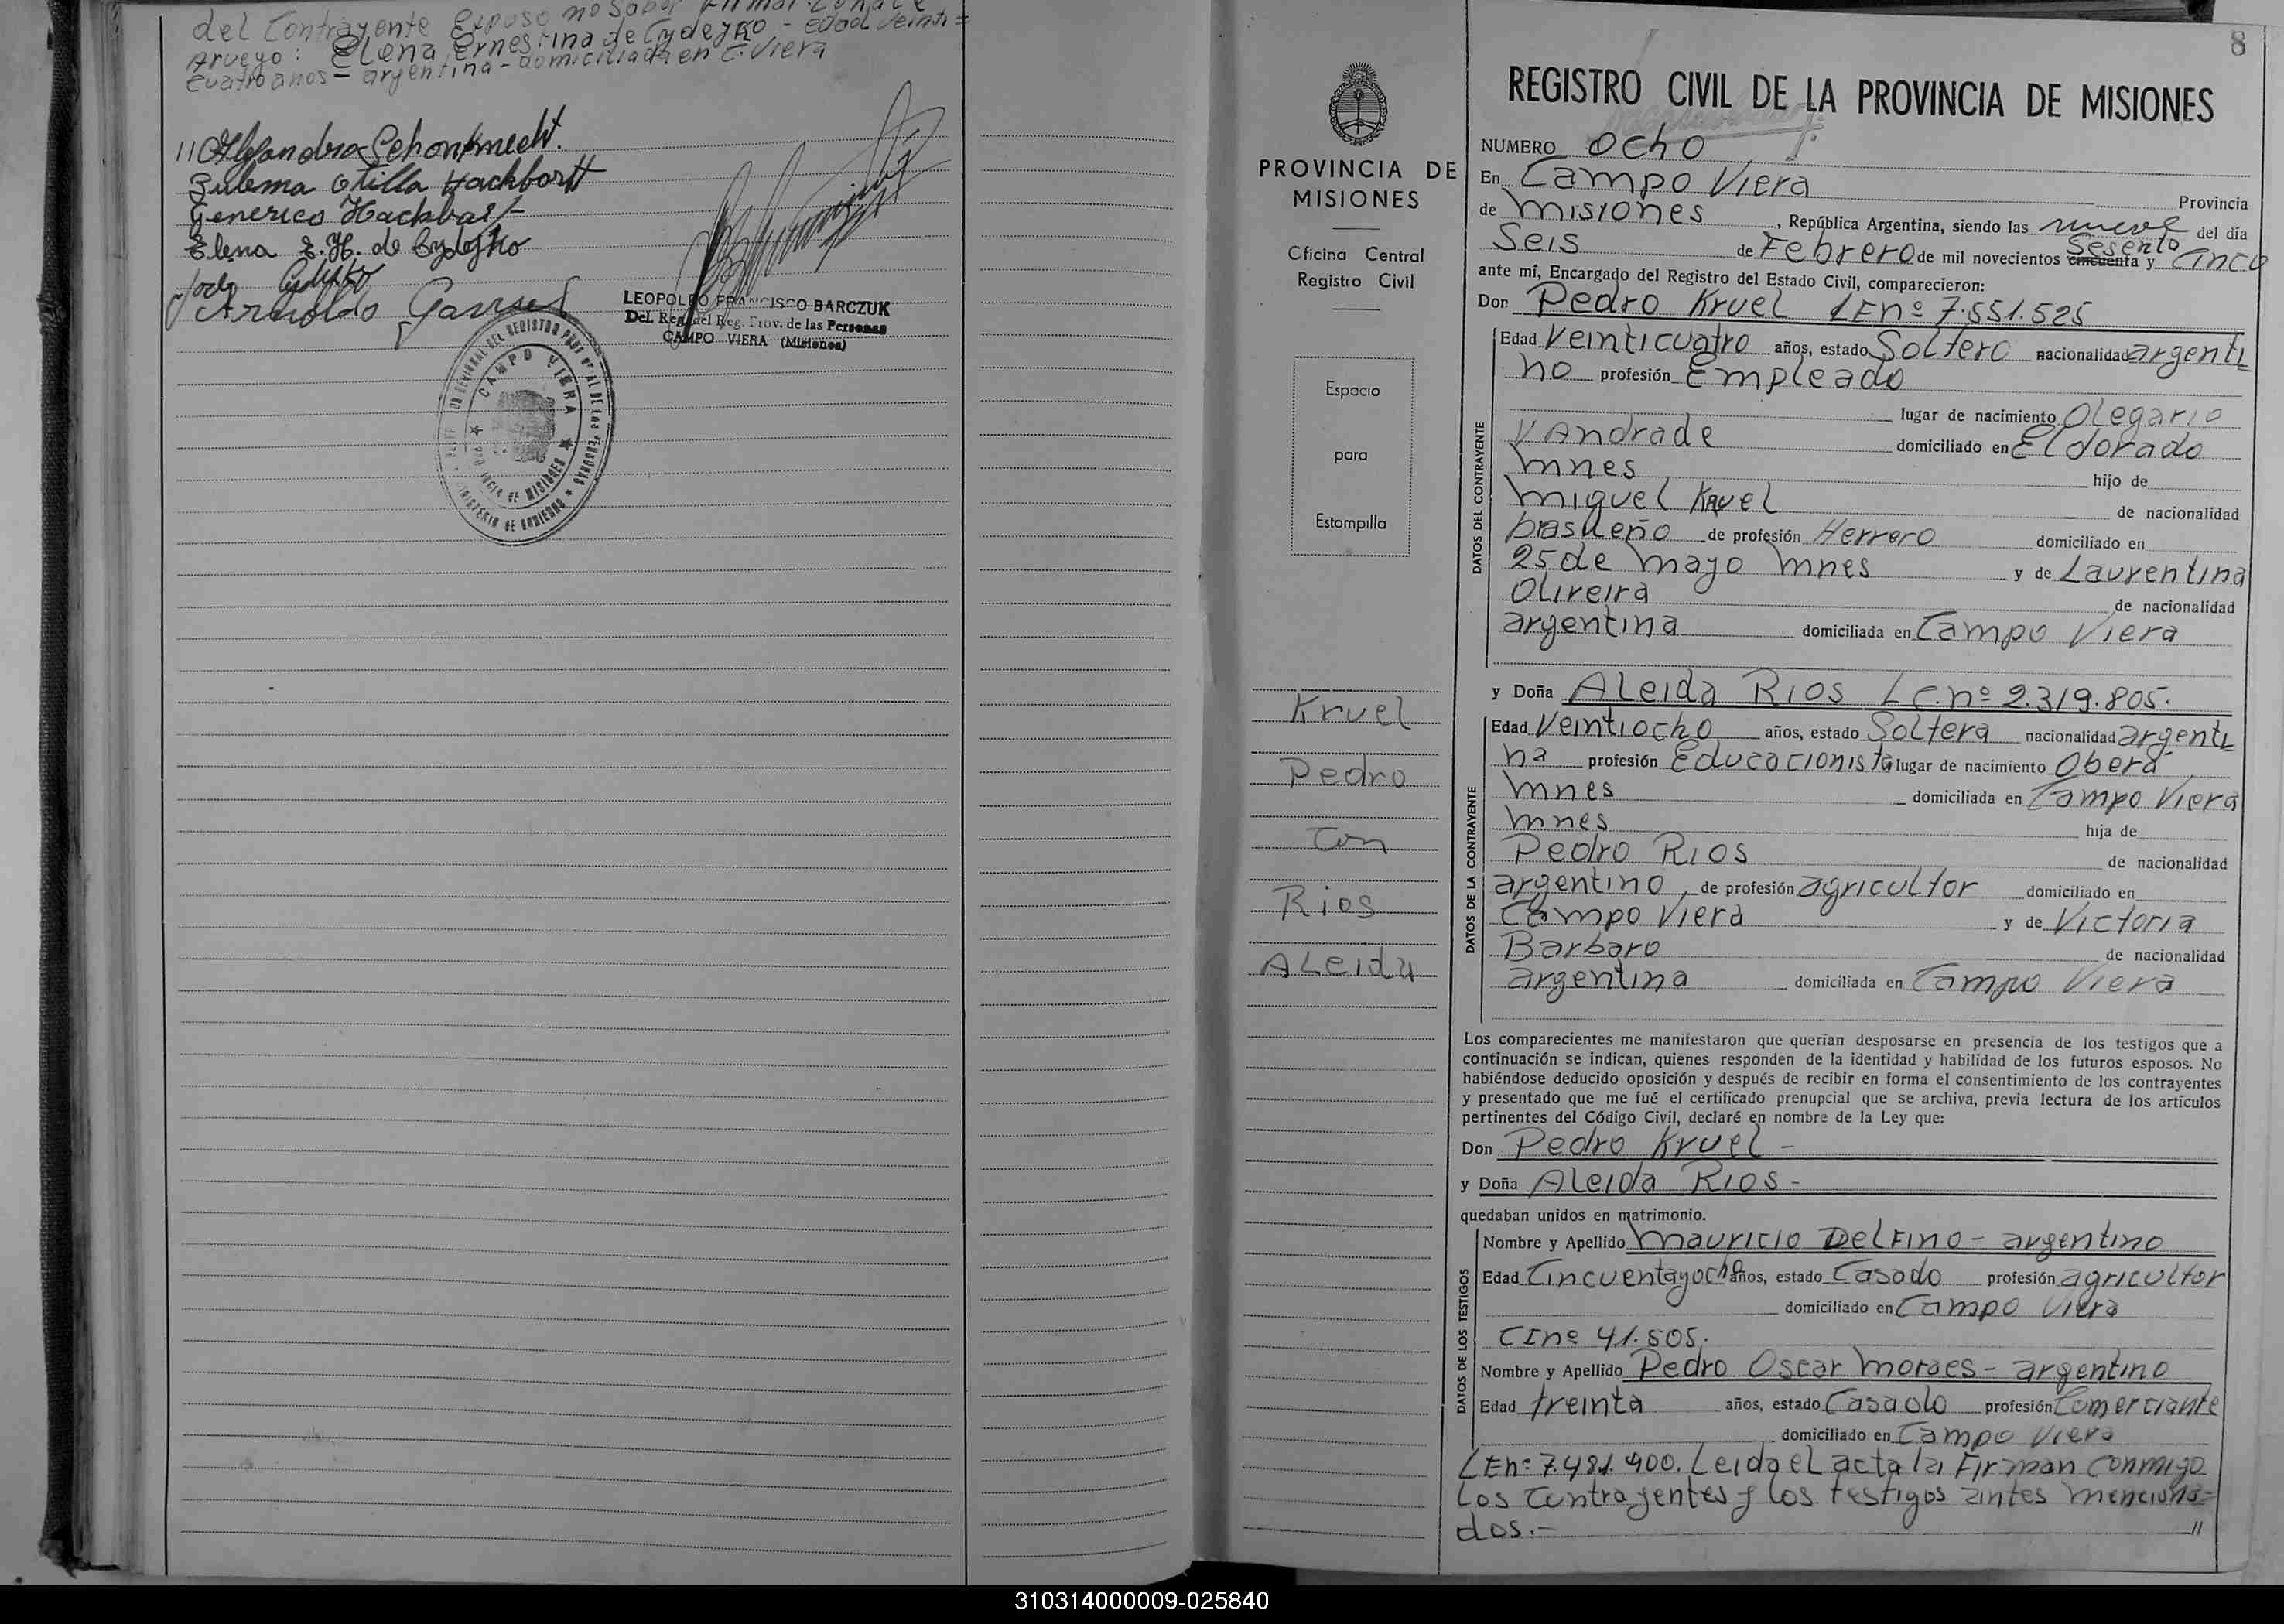 del Contrayente Expuso no Saber Firmar
Aruego: Elena Ernestina de Cydejko - edad veinti=
cuatro anos - argentina - domiciliada en C. Viera
// Alejandro Schonknecht.
Zulema Otilla Hackbartt
Generico Hackbart
Elena E. H. de Cydejko
Arnoldo
LEOPOLDO FRANCISCO BARCZUK
Del. Reg. del Reg. Prov. de las Personas
CAMPO VIERA (Misiones)
CAMPO VIERA
PROVINCIA DE MISIONES
MINISTERIO DE GOBIERNO
8
PROVINCIA DE
MISIONES
Oficina Central
Registro Civil
Espacio
para
Estampilla
Kruel
Pedro
Con
Rios
ALeida
REGISTRO CIVIL DE LA PROVINCIA DE MISIONES
NUMERO Ocho
En Campo Viera Provincia
de Misiones, República Argentina, siendo las nueve del día
Seis de Febrero de mil novecientos cincuenta Sesenta y Cinco
ante mí, Encargado del Registro del Estado Civil, comparecieron:
Don Pedro Kruel LEnº 7.551.525
DATOS DEL CONTRAYENTE
Edad Veinticuatro años, estado Soltero nacionalidad argenti=
no profesión Empleado
lugar de nacimiento Olegario
V Andrade domiciliado en Eldorado
Mnes hijo de
Miguel Kruel de nacionalidad
brasileño de profesión Herrero domiciliado en
25 de Mayo Mnes y de Laurentina
Olireira de nacionalidad
argentina domiciliada en Campo Viera
y Doña ALeida Rios LC.nº 2.319.805.
DATOS DE LA CONTRAYENTE
Edad Veintiocho años, estado Soltera nacionalidad argenti=
na profesión Educacionista lugar de nacimiento Oberá
Mnes domiciliada en Campo Viera
Mnes hija de
Pedro Rios de nacionalidad
argentino, de profesión agricultor domiciliado en
Campo Viera y de Victoria
Barbaro de nacionalidad
argentina domiciliada en Campo Viera
Los comparecientes me manifestaron que querían desposarse en presencia de los testigos que a
continuación se indican, quienes responden de la identidad y habilidad de los futuros esposos. No
habiéndose deducido oposición y después de recibir en forma el consentimiento de los contrayentes
y presentado que me fué el certificado prenupcial que se archiva, previa lectura de los artículos
pertinentes del Código Civil, declaré en nombre de la Ley que:
Don Pedro Kruel -
y Doña ALeida Rios -
quedaban unidos en matrimonio.
DATOS DE LOS TESTIGOS
Nombre y Apellido Mauricio DelFino - argentino
Edad Cincuentayocho años, estado Casado profesión agricultor
domiciliado en Campo Viera
CInº 41.505.
Nombre y Apellido Pedro Oscar Moraes - argentino
Edad treinta años, estado Casado profesión Comerciante
domiciliado en Campo Viera
LEnº 7.481.900. Leida el acta la Firman conmigo
Los Contrayentes y los testigos antes menciona=
dos.- //
310314000009-025840